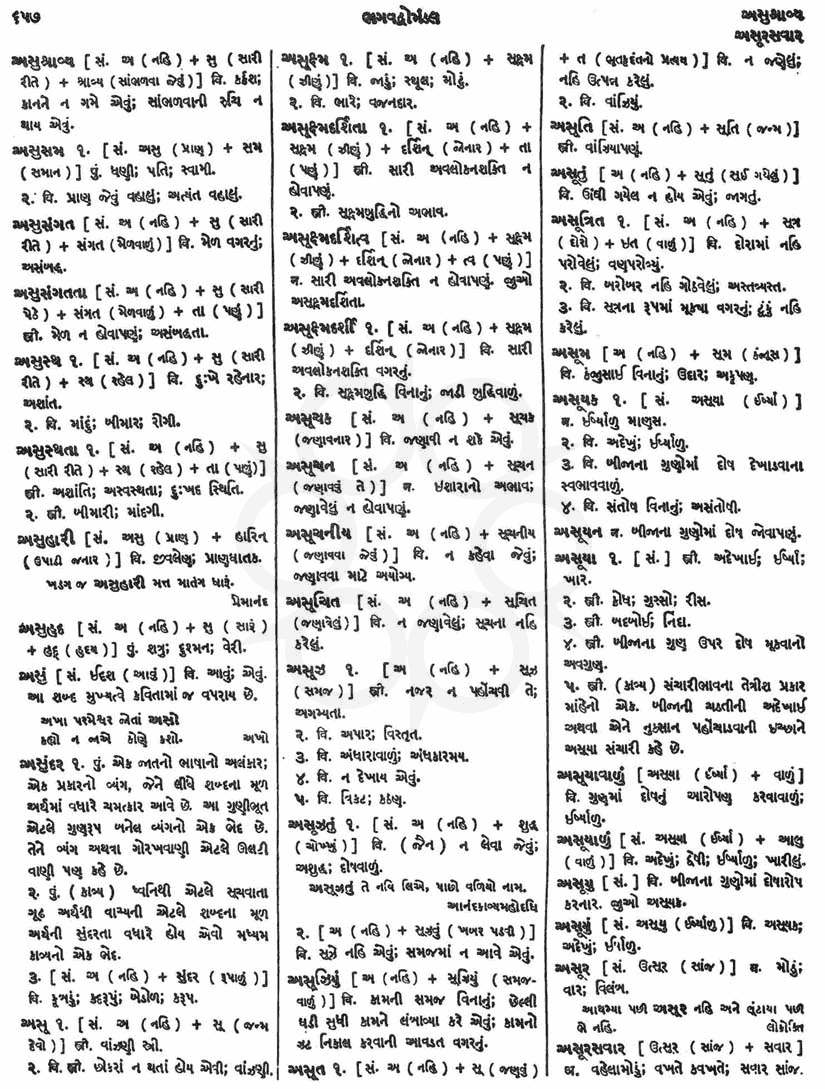 ૬૫૭
ભગવદ્ગોમંડલ
અસુશ્રાવ્ય
અસૂરસવાર
અસુશ્રાવ્ય [ સં. અ ( નહિ ) + સુ ( સારી
રીતે ) + શ્રાવ્ય ( સાંભળવા જેવું ) ] વિ. કર્કશ;
કાનને ન ગમે એવું; સાંભળવાની રુચિ ન
થાય એવું.
અસુસમ ૧. [ સં. અસુ ( પ્રાણ ) + સમ
( સમાન ) ] પું. ધણી; પતિ; સ્વામી.
૨. વિ. પ્રાણ જેવું વહાલું; અત્યંત વહાલું.
અસુસંગત [ સં. અ ( નહિ ) + સુ ( સારી
રીતે ) + સંગત ( મેળવાળું ) ] વિ. મેળ વગરનું;
અસંબદ્ધ.
અસુસંગતતા [ સં. અ ( નહિ ) + સુ ( સારી
પેઠે ) + સંગત ( મેળવાળું ) + તા ( પણું ) ]
સ્ત્રી. મેળ ન હોવાપણું; અસંબદ્ધતા.
અસુસ્થ ૧. [ સં. અ ( નહિ ) + સુ ( સારી
રીતે ) + સ્થ ( રહેલ ) ] વિ. દુઃખે રહેનાર;
અશાંત.
૨. વિ. માંદું; બીમાર; રોગી.
અસુસ્થતા ૧. [ સં. અ ( નહિ ) + સુ
( સારી રીતે ) + સ્થ ( રહેલ ) + તા ( પણું ) ]
સ્ત્રી. અશાંતિ; અસ્વસ્થતા; દુઃખદ સ્થિતિ.
૨. સ્ત્રી. બીમારી; માંદગી.
અસુહારી [ સં. અસુ ( પ્રાણ ) + હારિન
( ઉપાડી જનાર ) ] વિ. જીવલેણ; પ્રાણઘાતક.
ખડગ જ અસુહારી મત્ત માતંગ ધારૂં.
પ્રેમાનંદ
અસુહૃદ [ સં. અ ( નહિ ) + સુ ( સારૂં )
+ હૃદ્ ( હૃદય ) ] પું. શત્રુ; દુશ્મન; વેરી.
અસું [ સં. ઈદશ ( આવું ) ] વિ. આવું; એવું.
આ શબ્દ મુખ્યત્વે કવિતામાં જ વપરાય છે.
અખા પરમેશ્વર જોતાં અસો
કહ્યો ન જાએ કોણે કશો. અખો
અસુંદર ૧. પું. એક જાતનો ભાષાનો અલંકાર;
એક પ્રકારનો વ્યંગ, જેને લીધે શબ્દના મૂળ
અર્થમાં વધારે ચમત્કાર આવે છે. આ ગુણીભૂત
એટલે ગુણરૂપ બનેલ વ્યંગનો એક ભેદ છે.
તેને વ્યંગ અથવા ગોરખવાણી એટલે ઊલટી
વાણી પણ કહે છે.
૨. પું. ( કાવ્ય ) ધ્વનિથી એટલે સૂચવાતા
ગૂઢ અર્થથી વાચ્યની એટલે શબ્દના મૂળ
અર્થની સુંદરતા વધારે હોય એવો મધ્યમ
કાવ્યનો એક ભેદ.
૩. [ સં. અ ( નહિ ) + સુંદર ( રૂપાળું ) ]
વિ. કૂબડું; કદરૂપું; બેડોળ; કરૂપ.
અસૂ ૧. [ સં. અ ( નહિ ) + સૂ ( જન્મ
દેવો ) ] સ્ત્રી. વાંઝણી સ્ત્રી.
૨. વિ. સ્ત્રી. છોકરાં ન થતાં હોય એવી; વાંઝણી.
અસૂક્ષ્મ ૧. [ સં. અ ( નહિ ) + સૂક્ષ્મ
( ઝીણું ) ] વિ. જાડું; સ્થૂલ; મોટું.
૨. વિ. ભારે; વજનદાર.
અસૂક્ષ્મદર્શિતા ૧. [ સં. અ ( નહિ ) +
સૂક્ષ્મ ( ઝીણું ) + દર્શિન્ ( જોનાર ) + તા
( પણું ) ] સ્ત્રી. સારી અવલોકનશક્તિ ન
હોવાપણું.
૨. સ્ત્રી. સૂક્ષ્મબુદ્ધિનો અભાવ.
અસૂક્ષ્મદર્શિત્વ [ સં. અ ( નહિ ) + સૂક્ષ્મ
( ઝીણું ) + દર્શિન્ ( જોનાર ) + ત્વ ( પણું ) ]
ન. સારી અવલોકનશક્તિ ન હોવાપણું. જુઓ
અસૂક્ષ્મદર્શિતા.
અસૂક્ષ્મદર્શી ૧. [ સં. અ ( નહિ ) + સૂક્ષ્મ
( ઝીણું ) + દર્શિન્ ( જોનાર ) ] વિ. સારી
અવલોકનશક્તિ વગરનું.
૨. વિ. સૂક્ષ્મબુદ્ધિ વિનાનું; જાડી બુદ્ધિવાળું.
અસૂચક [ સં. અ ( નહિ ) + સૂચક
( જણાવનાર ) ] વિ. જણાવી ન શકે એવું.
અસૂચન [ સં. અ ( નહિ ) + સૂચન
( જણાવવું તે ) ] ન. ઇશારાનો અભાવ;
જણાવેલું ન હોવાપણું.
અસૂચનીય [ સં. અ ( નહિ ) + સૂચનીય
( જણાવવા જેવું ) ] વિ. ન કહેવા જેવું;
જણાવવા માટે અયોગ્ય.
અસૂચિત [ સં. અ ( નહિ ) + સૂચિત
( જણાવેલું ) ] વિ. ન જણાવેલું; સૂચના નહિ
કરેલું.
અસૂઝ ૧. [ અ ( નહિ ) + સૂઝ
( સમજ ) ] સ્ત્રી. નજર ન પહોંચવી તે;
અગમ્યતા.
૨. વિ. અપાર; વિસ્તૃત.
૩. વિ. અંધારાવાળું; અંધકારમય.
૪. વિ. ન દેખાય એવું.
૫. વિ. વિકટ; કઠણ.
અસૂઝતું ૧. [ સં. અ ( નહિ ) + શુદ્ધ
( ચોખ્ખું ) ] વિ. ( જૈન ) ન લેવા જેવું;
અશુદ્ધ; દોષવાળું.
અસૂઝતું તે નવિ લિએ, પાછો વળિયો નામ.
આનંદકાવ્યમહોદધિ
૨. [ અ ( નહિ ) + સૂઝવું ( ખબર પડવી ) ]
વિ. સૂઝે નહિ એવું; સમજમાં ન આવે એવું.
અસૂઝિયું [ અ ( નહિ ) + સૂઝિયું ( સમજ-
વાળું ) ] વિ. કામની સમજ વિનાનું; છેલ્લી
ઘડી સુધી કામને લંબાવ્યા કરે એવું; કામનો
ઝટ નિકાલ કરવાની આવડત વગરનું.
અસૂત ૧. [ સં. અ ( નહિ ) + સૂ ( જણવું )
+ ત ( ભૂતકૃદંતનો પ્રત્યય ) ] વિ. ન જણેલું;
નહિ ઉત્પન્ન કરેલું.
૨. વિ. વાંઝિયું.
અસૂતિ [ સં. અ ( નહિ ) + સૂતિ ( જન્મ ) ]
સ્ત્રી. વાંઝિયાપણું.
અસૂતું [ અ ( નહિ ) + સૂતું ( સૂઈ ગયેલું ) ]
વિ. ઊંઘી ગયેલ ન હોય એવું; જાગતું.
અસૂત્રિત ૧. [ સં. અ ( નહિ ) + સૂત્ર
( દોરો ) + ઇત ( વાળું ) ] વિ. દોરામાં નહિ
પરોવેલું; વણપરોવ્યું.
૨. વિ. બરોબર નહિ ગોઠવેલું; અસ્તવ્યસ્ત.
૩. વિ. સૂત્રના રૂપમાં મૂક્યા વગરનું; ટૂંકું નહિ
કરેલું.
અસૂમ [ અ ( નહિ ) + સૂમ ( કંજૂસ ) ]
વિ. કંજુસાઈ વિનાનું; ઉદાર; અકૃપણ.
અસૂયક ૧. [ સં. અસૂયા ( ઈર્ષ્યા ) ]
ન. ઈર્ષ્યાળુ માણસ.
૨. વિ. અદેખું; ઈર્ષ્યાળુ.
૩. વિ. બીજાના ગુણોમાં દોષ દેખાડવાના
સ્વભાવવાળું.
૪. વિ. સંતોષ વિનાનું; અસંતોષી.
અસૂયન ન. બીજાના ગુણોમાં દોષ જોવાપણું.
અસૂયા ૧. [ સં. ] સ્ત્રી. અદેખાઈ; ઈર્ષ્યા;
ખાર.
૨. સ્ત્રી. ક્રોધ; ગુસ્સો; રીસ.
૩. સ્ત્રી. બદબોઈ; નિંદા.
૪. સ્ત્રી. બીજાના ગુણ ઉપર દોષ મૂકવાનો
અવગુણ.
૫. સ્ત્રી. ( કાવ્ય ) સંચારીભાવના તેત્રીશ પ્રકાર
માંહેનો એક. બીજાની ચડતીની અદેખાઈ
અથવા એને નુકસાન પહોંચાડવાની ઇચ્છાને
અસૂયા સંચારી કહે છે.
અસૂયાવાળું [ અસૂયા ( ઈર્ષ્યા ) + વાળું ]
વિ. ગુણમાં દોષનું આરોપણ કરવાવાળું;
ઈર્ષ્યાળુ.
અસૂયાળું [ સં. અસૂયા ( ઈર્ષ્યા ) + આલુ
( વાળું ) ] વિ. અદેખું; દ્વેષી; ઈર્ષ્યાળુ; ખારીલું.
અસૂયુ [ સં. ] વિ. બીજાના ગુણોમાં દોષારોપ
કરનાર. જુઓ અસૂયક.
અસૂયું [ સં. અસૂયુ ( ઈર્ષ્યાળુ ) ] વિ. અસૂયક;
અદેખું; ઈર્ષાળુ.
અસૂર [ સં. ઉત્સૂર ( સાંજ ) ] ન. મોડું;
વાર; વિલંબ.
આથમ્યા પછી અસૂર નહિ અને લૂંટાયા પછી
ભે નહિ. લોકોક્તિ
અસૂરસવાર [ ઉત્સૂર ( સાંજ ) + સવાર ]
ન. વહેલામોડું; વખતે કવખતે; સવાર સાંજ.